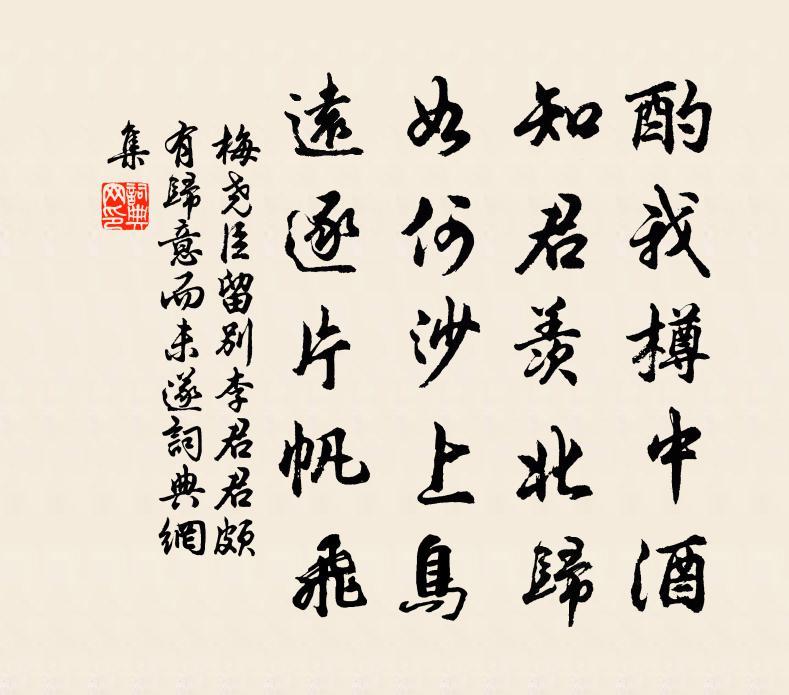 酌我樽中酒
知君羨北歸
如何沙上鳥
遠逐片帆飛
梅堯臣留別李君君頗
有歸意而未遂詞典網
集
詞典
网印